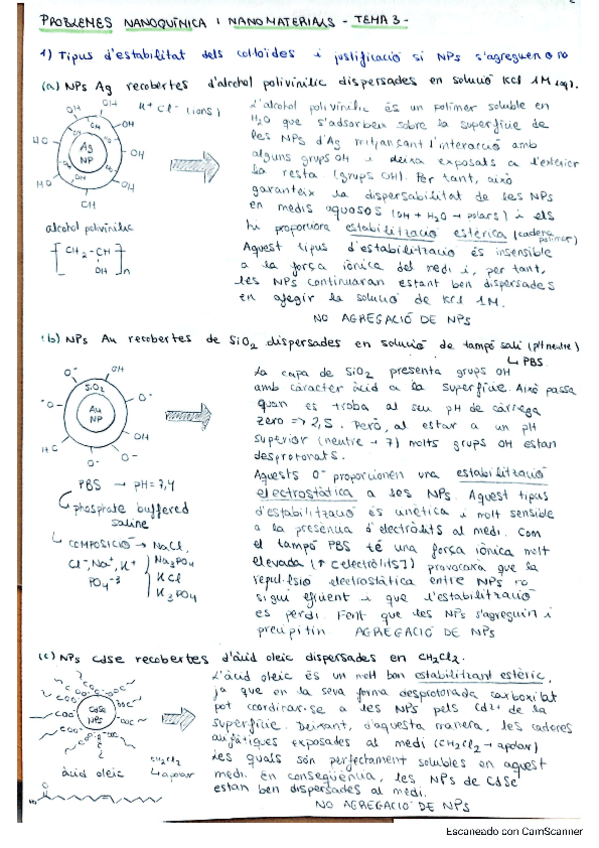 PROBLEMES NANOQUÍMICA I NANOMATERIALS - TEMA 3 -
1) Tipus d'estabilitat dels col·loides i justificació si NPs s'agreguen o no
(a) NPs Ag recobertes d'alcohol polivinílic dispersades en solució KCl 1M (aq).
K+ Cl- (ions)
OH
OH
OH
OH
OH
OH
HO
HO
Ag
NP
alcohol polivinílic
[CH2-CH]n
OH
L'alcohol polivinílic és un polímer soluble en
H2O que s'adsorbeix sobre la superfície de
les NPs d'Ag mitjançant l'interacció amb
alguns grups OH i deixa exposats a l'exterior
la resta (grups OH). Per tant, això
garanteix la dispersabilitat de les NPs
en medis aquosos (OH + H2O → polars) i els
hi proporciona estabilització estèrica (cadena
polímer)
Aquest tipus d'estabilització és insensible
a la força iònica del medi i, per tant,
les NPs continuaran estant ben dispersades
en afegir la solució de KCl 1M.
NO AGREGACIÓ DE NPs
(b) NPs Au recobertes de SiO2 dispersades en solució de tampó salí (pH neutre)
↳ PBS
O-
OH
O-
O-
SiO2
Au
NP
OH
O-
O-
PBS → pH = 7,4
↳ phosphate buffered
saline
↳ COMPOSICIÓ → NaCl,
Cl-, Na+, K+
PO4-3
Na3PO4
KCl
K3PO4
La capa de SiO2 presenta grups OH
amb caràcter àcid a la superfície. Això passa
quan es troba al seu pH de càrrega
zero => 2,5. Però, al estar a un pH
superior (neutre → 7) molts grups OH estan
desprotonats.
Aquests O- proporcionen una estabilització
electrostàtica a les NPs. Aquest tipus
d'estabilització és cinètica i molt sensible
a la presència d'electròlits al medi. Com
el tampó PBS té una força iònica molt
elevada (↑ [electròlits]) provocarà que la
repulsió electrostàtica entre NPs no
sigui eficient i que l'estabilització
es perdi. Fent que les NPs s'agreguin i
precipitin AGREGACIÓ DE NPs
(c) NPs CdSe recobertes d'àcid oleic dispersades en CH2Cl2.
COO-
COO-
COO-
COO-
CdSe
NPs
àcid oleic
CH2Cl2
↳ apolar
HO
L'àcid oleic és un molt bon estabilitzant estèric,
ja que en la seva forma desprotonada carboxilat
pot coordinar-se a les NPs pels Cd2+ de la
superfície. Deixant, d'aquesta manera, les cadenes
alifàtiques exposades al medi (CH2Cl2 → apolar)
les quals són perfectament solubles en aquest
medi. En conseqüència, les NPs de CdSe
estan ben dispersades al medi.
NO AGREGACIÓ DE NPs
Escaneado con CamScanner